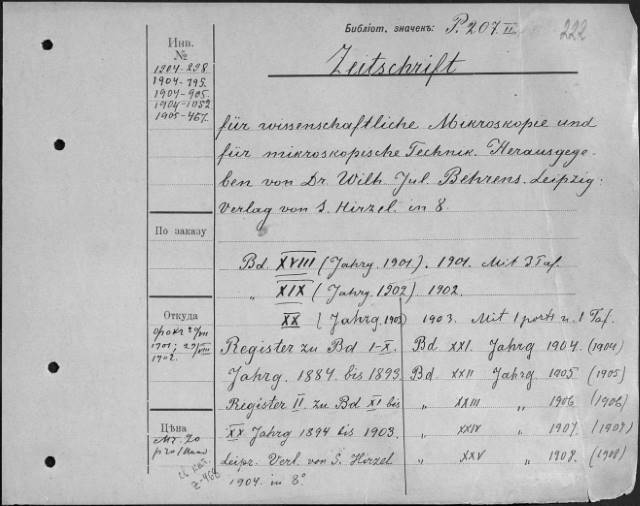 Библіот. значекъ: P. 207. II
222
Zeitschrift
Инв.
№
1904-238.
1904-795.
1904-905.
1904-1052
1905-467.
für wissenschaftliche Mikroskopie und
für mikroskopische Technik. Herausgege-
ben von Dr. Wilh. Jul. Behrens. Leipzig.
Verlag von S. Hirzel. in 8.
По заказу
Bd. XVIII (Jahrg. 1901). 1901. Mit 3 Taf.
„ XIX (Jahrg. 1902) 1902.
XX (Jahrg. 1903) 1903. Mit 1 portr. u. 1 Taf.
Откуда
1901;
1902.
Register zu Bd I-X.
Jahrg. 1884 bis 1893.
Register II. zu Bd XI bis
XX Jahrg 1894 bis 1903.
Leipz. Verl. von S. Hirzel
1904. in 8°
Bd. XXI. Jahrg 1904. (1904)
Bd. XXII Jahrg 1905 (1905)
„ XXIII „ 1906 (1906)
„ XXIV „ 1907. (1907)
„ XXV „ 1908. (1908)
Цѣна
Mr. 20
pro/Band
Z-468